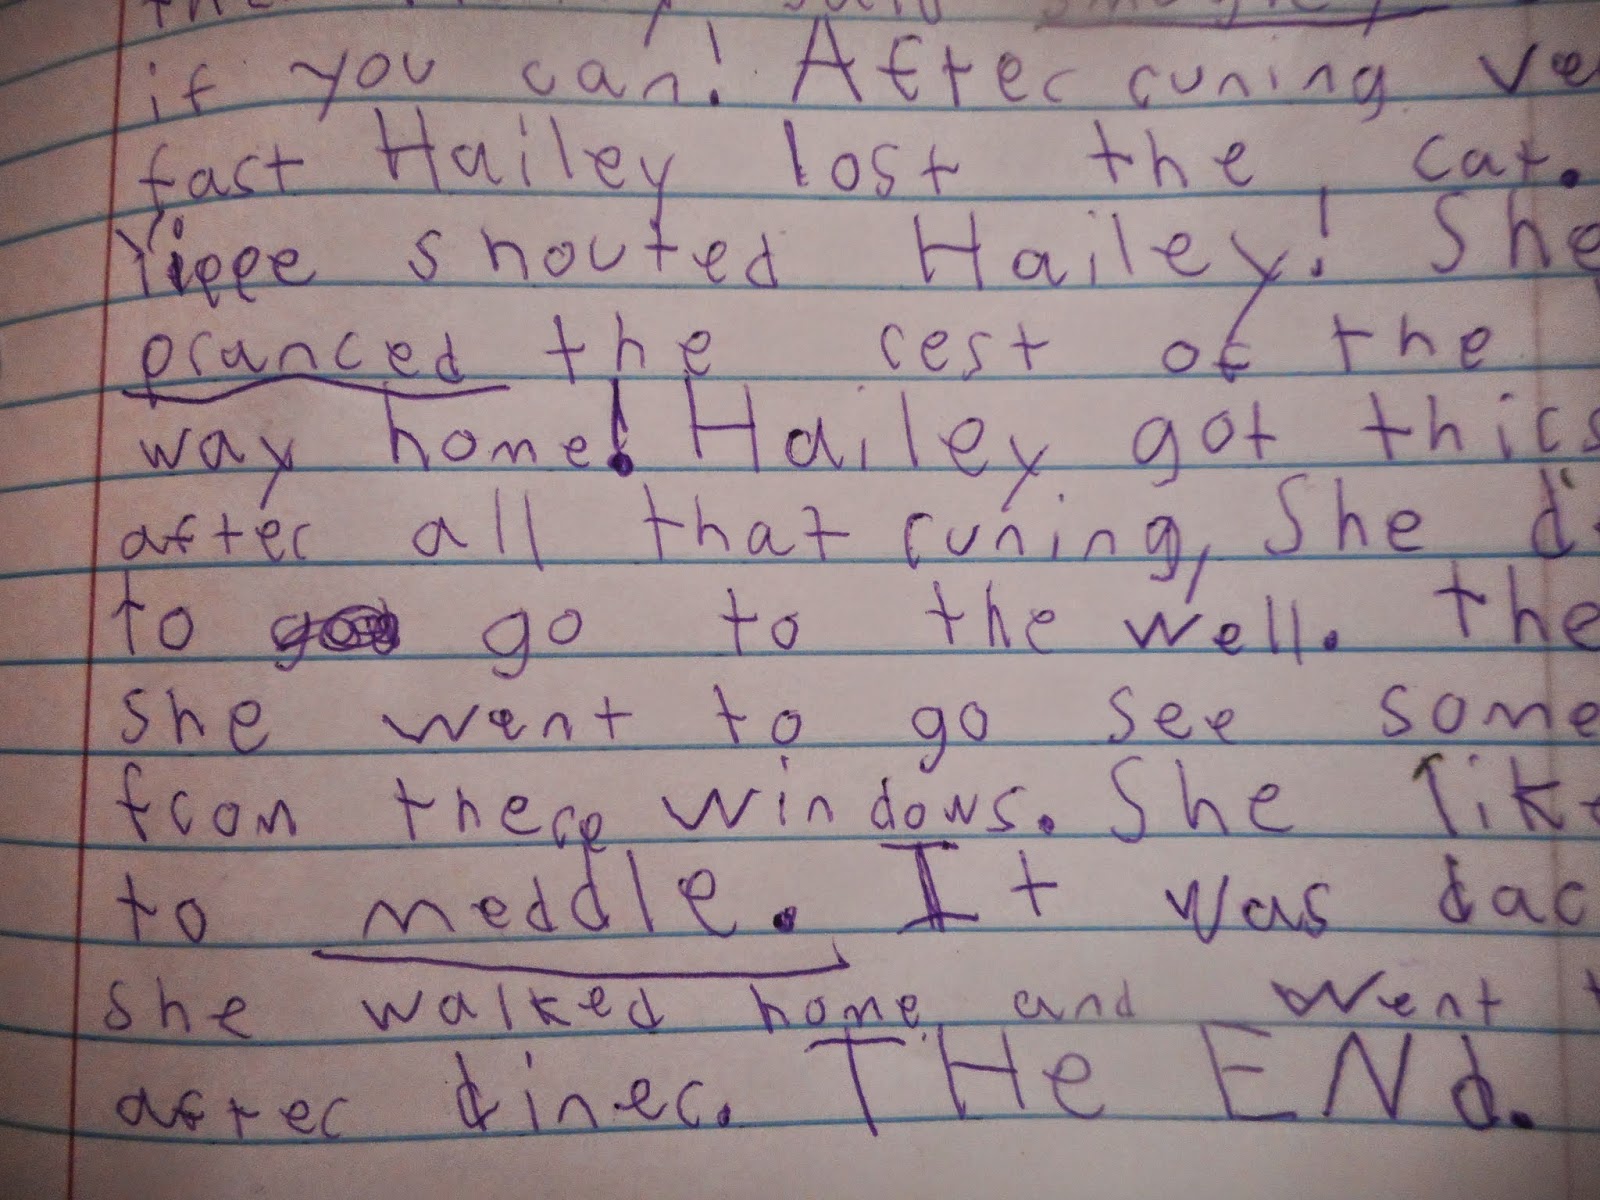 if you can! After runing ve
fast Hailey lost the cat.
Yippe shouted Hailey! She
pranced the rest of the
way home! Hailey got thirs
after all that runing, She d
to go to the well. the
she went to go see some
from there windows. She lik
to meddle. It was dar
she walked home and went t
after diner. THe ENd.